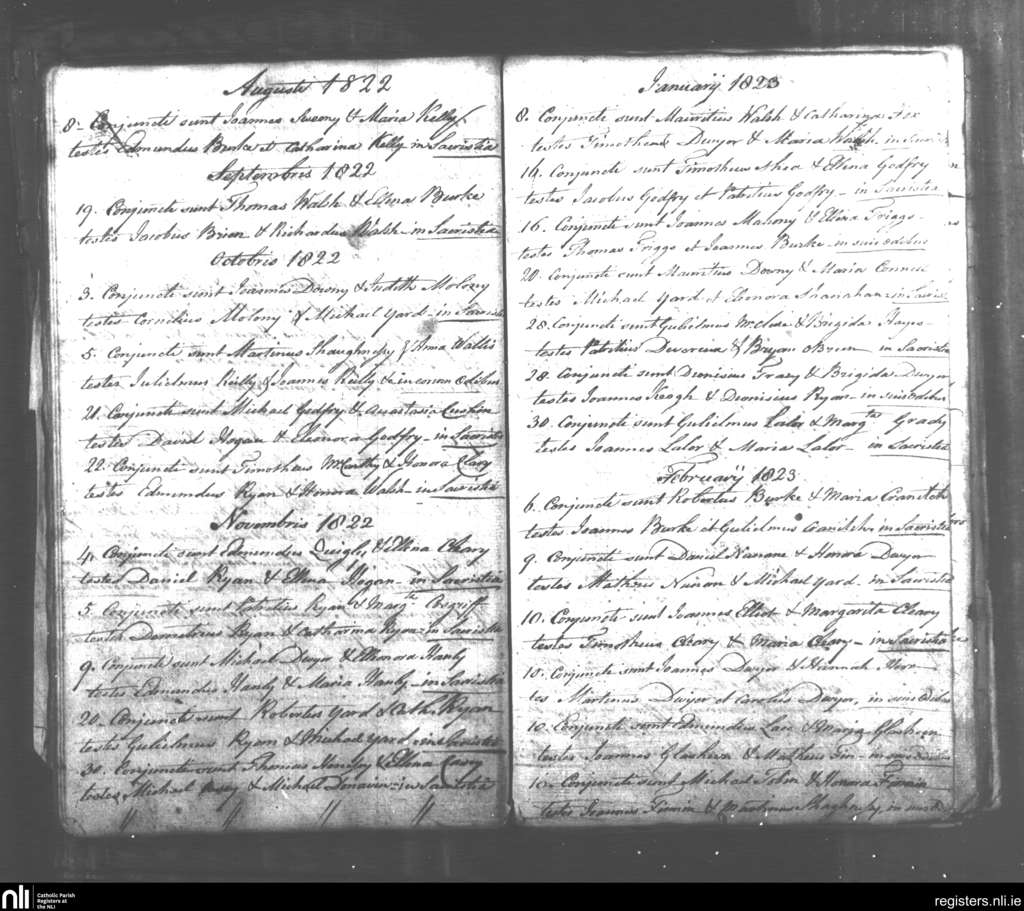 Augusti 1822
8 - Conjuncti sunt Joannes Sweeny & Maria Kelly
testes Edmundus Burke et Catharina Kelly in Sacristia
Septembris 1822
19. Conjuncti sunt Thomas Walsh & Elena Burke
testes Jacobus Brien & Richardus Walsh - in Sacristia
Octobris 1822
3. Conjuncti sunt Joannes Downy & Judith Molony
testes Cornelius Molony & Michael Yard - in Sacristia
5. Conjuncti sunt Martinus Shaughnessy & Anna Wallis
testes Julielmus Reilly & Joannes Reilly & in eorum Edibus
21. Conjuncti sunt Michael Godfry & Anastasia
testes David Hogan & Eleonora Godfry - in Sacristia
22. Conjuncti sunt Timotheus McCarthy & Honora Cleary
testes Edmundus Ryan & Honora Walsh - in Sacristia
Novembris 1822
4. Conjuncti sunt Edmundus Quigly & Ellena Cleary
testes Daniel Ryan & Ellena Hogan - in Sacristia
5. Conjuncti sunt Patritius Ryan & Margte Cosgriff
testes Ryan & Catharina Ryan in Sacristia
9. Conjuncti sunt Michael Dwyer & Elleonora Hanly
testes Edmundus Hanly & Maria Hanly - in Sacristia
20. Conjuncti sunt Robertus Yard & Cath. Ryan
testes Gulielmus Ryan & Michael Yard - in Sacristia
30. Conjuncti sunt Thomas & Ellena Casey
testes Michael Casey & Michael Donavin - in Sacristia
Januarij 1823
8. Conjuncti sunt Mauritius Walsh & Catharina Fox
testes Timotheus Dwyer & Maria Walsh in
14. Conjuncti sunt Timotheus Shea & Elena Godfry
testes Jacobus Godfry et Patritius Godfry - in Sacristia
16. Conjuncti sunt Joannes Mahony & Elena Griggs
testes Thomas Griggs et Joannes Burke - in suis edibus
20. Conjuncti sunt Mauritius Downy & Maria Connell
testes Michael Yard et Elenora Shanahan - in Sacris
28. Conjuncti sunt Gulielmus McClure & Brigida Hayes
testes Patritius Devereux & Bryan OBrien in Sacristia
28. Conjuncti sunt Dionisius Tracy & Brigida Dwyer
testes Joannes Keogh & Dionisius Ryan - in suis edibus
30. Conjuncti sunt Gulielmus Lalor & Margtta Grady
testes Joannes Lalor & Maria Lalor - in Sacristia
Februarij 1823
6. Conjuncti sunt Robertus Burke & Maria Cranitch
testes Joannes Burke et Gulielmus Cranitch in Sacristia
9. Conjuncti sunt Daniel Nanone & Honora Dwyer
testes Matheus Nunan & Michael Yard. in Sacristia
10. Conjuncti sunt Joannes Elliot & Margarita Cleary
testes Timotheus Cleary & Maria Cleary - in Sacristia
10. Conjuncti sunt Joannes Dwyer & Hannah
tes Martinus Dwyer et Carolus Dwyer, in suis Edibus
10. Conjuncti sunt Edmundus Lace & Maria
testes Joannes & Matheus
10. Conjuncti sunt Michael & Honora
testes Joannes & Martinus Shaghnesy in
nli
Catholic Parish
Registers at
the NLI
registers.nli.ie